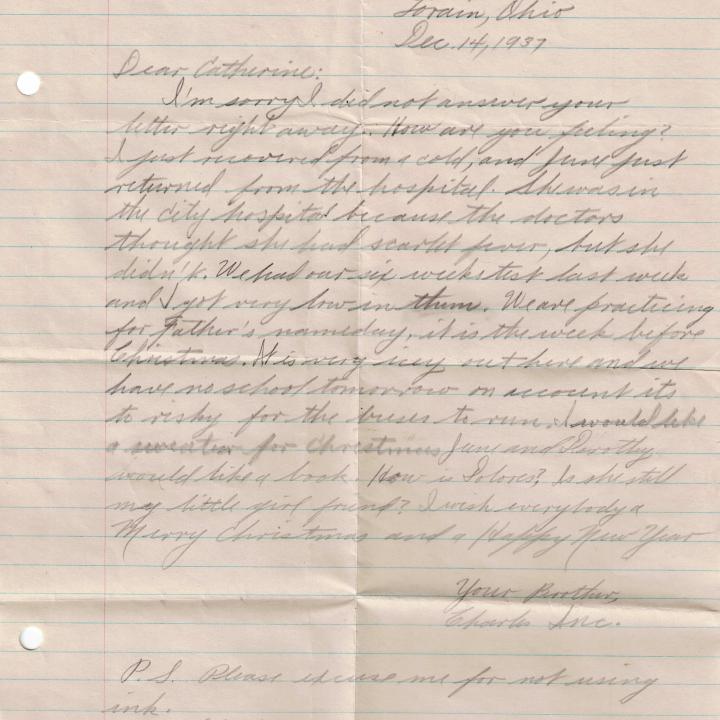 Lorain, Ohio
Dec. 14, 1937
Dear Catherine:
I'm sorry I did not answer your
letter right away. How are you feeling?
I just recovered from a cold, and June just
returned from the hospital. She was in
the city hospital because the doctors
thought she had scarlet fever, but she
didn't. We had our six weeks test last week
and I got very low in them. We are practicing
for Father's nameday, it is the week before
Christmas. It is very icy out here and we
have no school tomorrow on account its
to risky for the buses to run. I would like
a sweater for Christmas June and Dorothy
would like a book. How is Dolores? Is she still
my little girl friend? I wish everybody a
Merry Christmas and a Happy New Year
Your Brother,
Charles Inc.
P.S. Please excuse me for not using
ink.